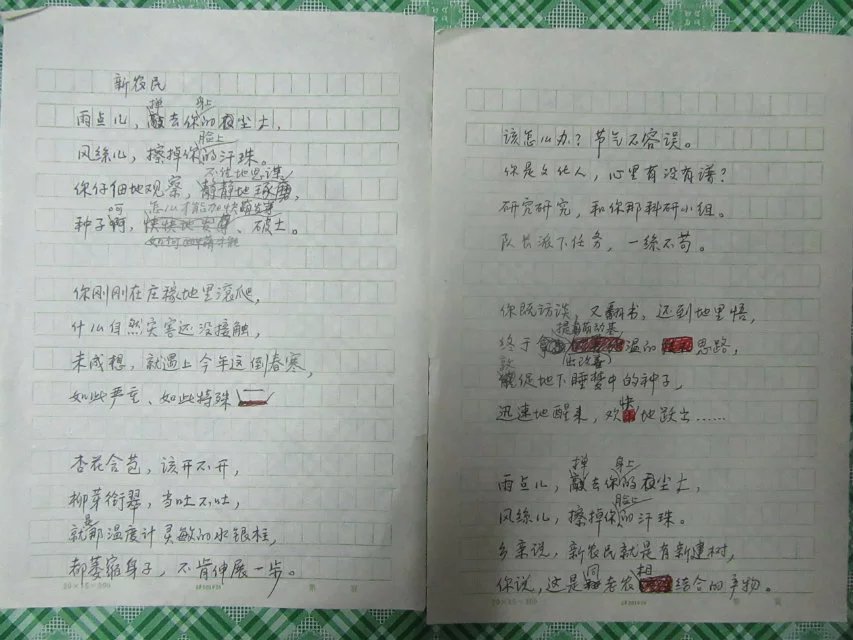 新农民
掸 身上
雨点儿，敲去你的衣尘土，
脸上
风丝儿，擦掉你的汗珠。
不住地思谋
你仔细地观察，静静地琢磨，
呵 怎么才能加快萌发
种子啊，快快地发芽、破土。
你刚刚在庄稼地里滚爬，
什么自然灾害还没接触，
未成想，就遇上今年这倒春寒，
如此严重、如此特殊
杏花含苞，该开不开，
柳芽衔翠，当吐不吐，
是
就那温度计灵敏的水银柱，
都萎缩身子，不肯伸展一步。
20×15=300
该怎么办？节气不容误。
你是文化人，心里有没有谱？
研究研究，和你那科研小组。
队长派下任务，一丝不苟。
你既访谈，又翻书，还到地里悟，
提具有功基
终于拿出温的思路，
敦
促地下睡梦中的种子，
快
迅速地醒来，欢地跃出……
掸 身上
雨点儿，敲去你的衣尘土，
脸上
风丝儿，擦掉你的汗珠。
乡亲说，新农民就是有新建树，
同 相
你说，这是和老农结合的产物。
20×15=300